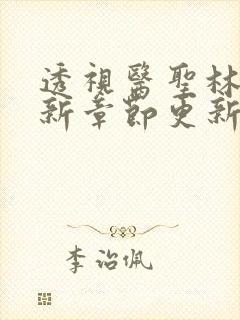 透視醫聖林
新章節更新
李治佩